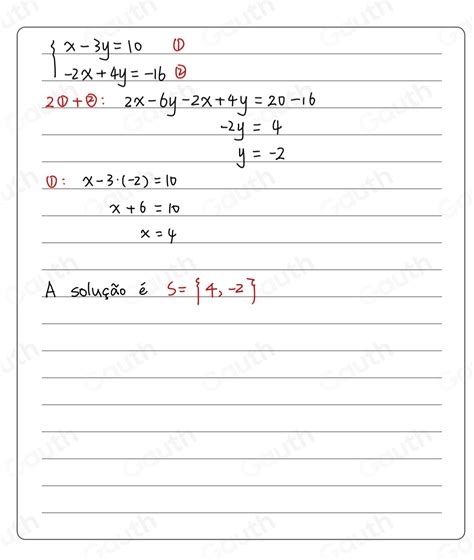 { x - 3y = 10 ①
-2x + 4y = -16 ②
2① + ②: 2x - 6y - 2x + 4y = 20 - 16
-2y = 4
y = -2
①: x - 3·(-2) = 10
x + 6 = 10
x = 4
A solução é S = {4, -2}
Gauth